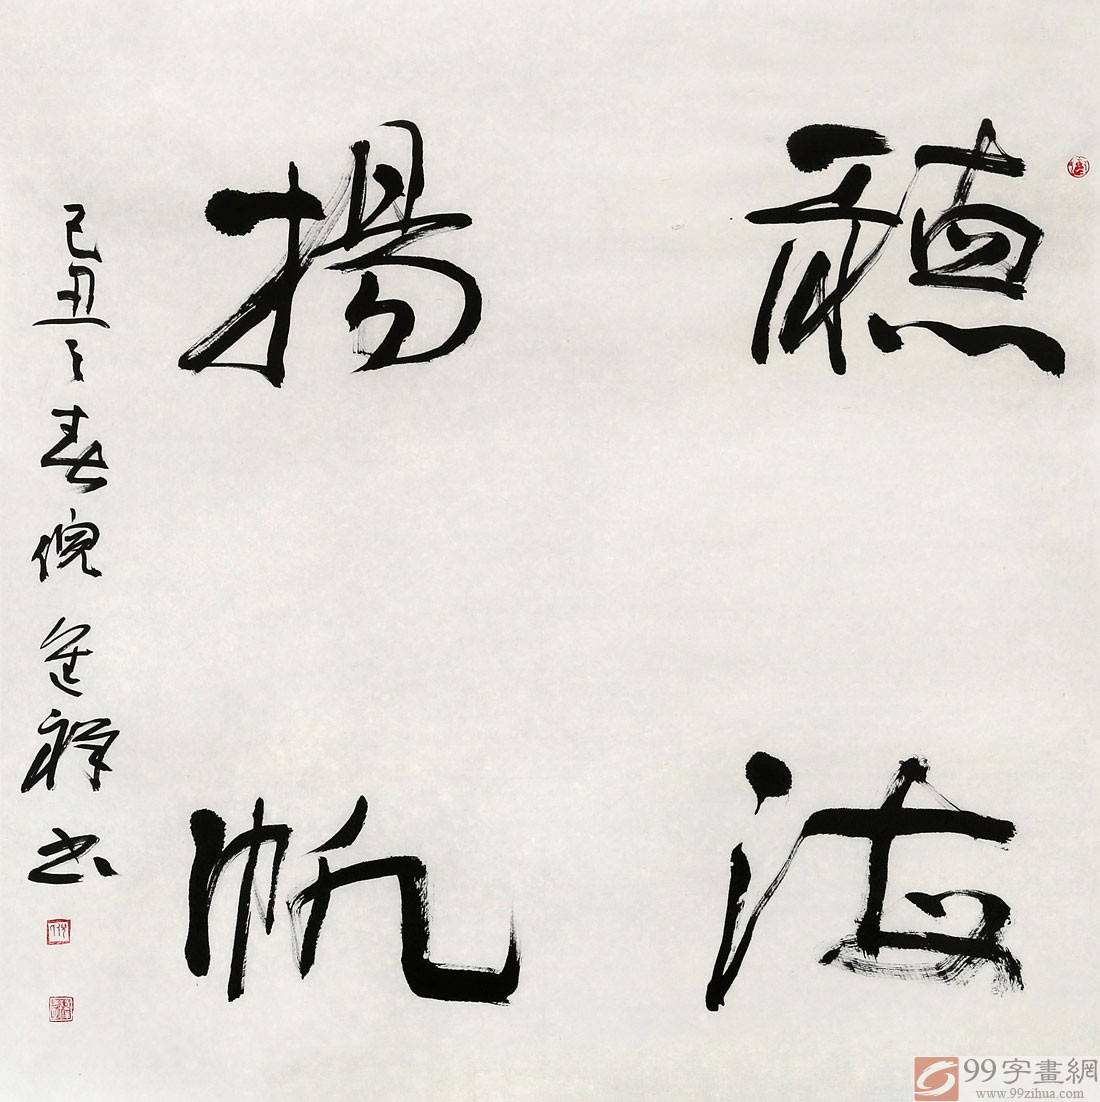 穗海
揚帆
己丑之春倪進祥书
99字畫網
www.99zihua.com